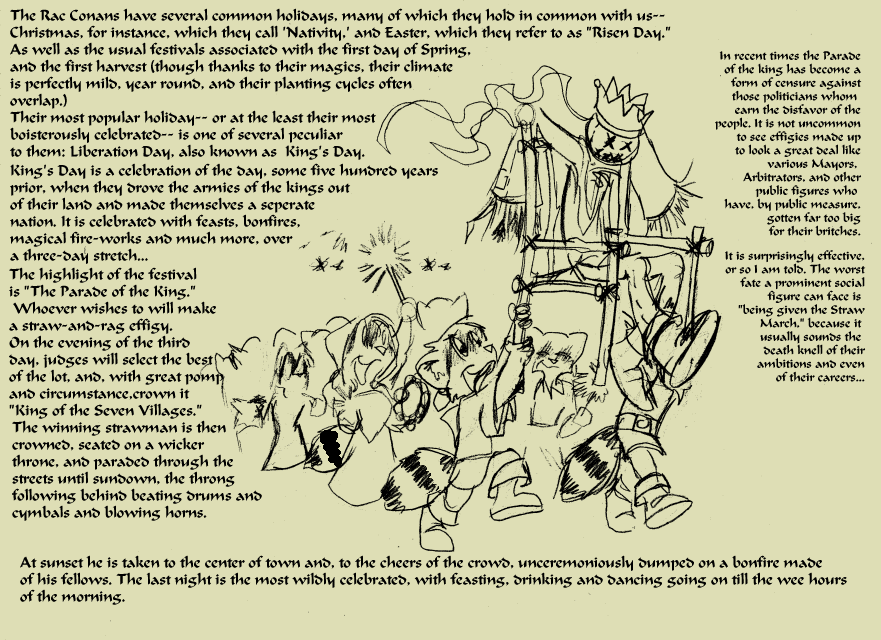 The Rac Conans have several common holidays, many of which they hold in common with us--
Christmas, for instance, which they call 'Nativity,' and Easter, which they refer to as "Risen Day."
As well as the usual festivals associated with the first day of Spring,
and the first harvest (though thanks to their magics, their climate
is perfectly mild, year round, and their planting cycles often
overlap.)
Their most popular holiday-- or at the least their most
boisterously celebrated-- is one of several peculiar
to them: Liberation Day, also known as King's Day.
King's Day is a celebration of the day, some five hundred years
prior, when they drove the armies of the kings out
of their land and made themselves a seperate
nation. It is celebrated with feasts, bonfires,
magical fire-works and much more, over
a three-day stretch...
The highlight of the festival
is "The Parade of the King."
Whoever wishes to will make
a straw-and-rag effigy.
On the evening of the third
day, judges will select the best
of the lot, and, with great pomp
and circumstance,crown it
"King of the Seven Villages."
The winning strawman is then
crowned, seated on a wicker
throne, and paraded through the
streets until sundown, the throng
following behind beating drums and
cymbals and blowing horns.
In recent times the Parade
of the king has become a
form of censure against
those politicians whom
earn the disfavor of the
people. It is not uncommon
to see effigies made up
to look a great deal like
various Mayors,
Arbitrators, and other
public figures who
have, by public measure,
gotten far too big
for their britches.
It is surprisingly effective,
or so I am told. The worst
fate a prominent social
figure can face is
"being given the Straw
March," because it
usually sounds the
death knell of their
ambitions and even
of their careers...
At sunset he is taken to the center of town and, to the cheers of the crowd, unceremoniously dumped on a bonfire made
of his fellows. The last night is the most wildly celebrated, with feasting, drinking and dancing going on till the wee hours
of the morning.